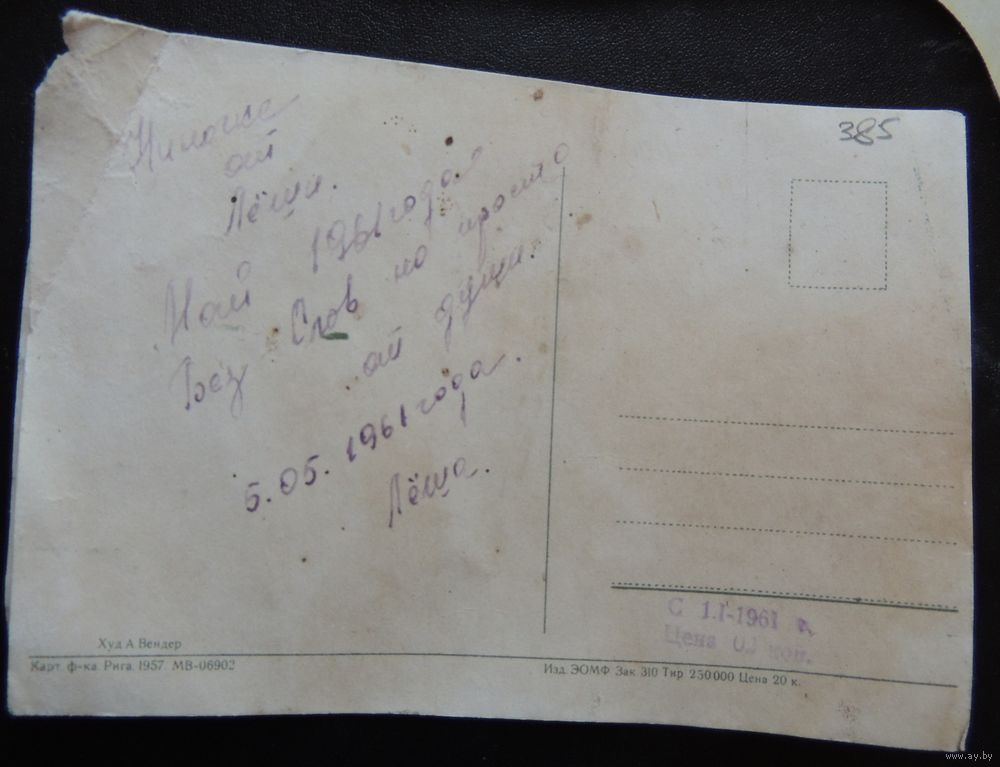 от
Лёши.
Май 1961 года
Без Слов но просто
от души.
5.05. 1961 года.
Лёша.
385
С 1.I-1961 г.
Цена коп.
Худ А Вендер
Карт. ф-ка. Рига. 1957 МВ-06902
Изд. ЭОМФ Зак 310 Тир 250000 Цена 20 к.
www.ay.by